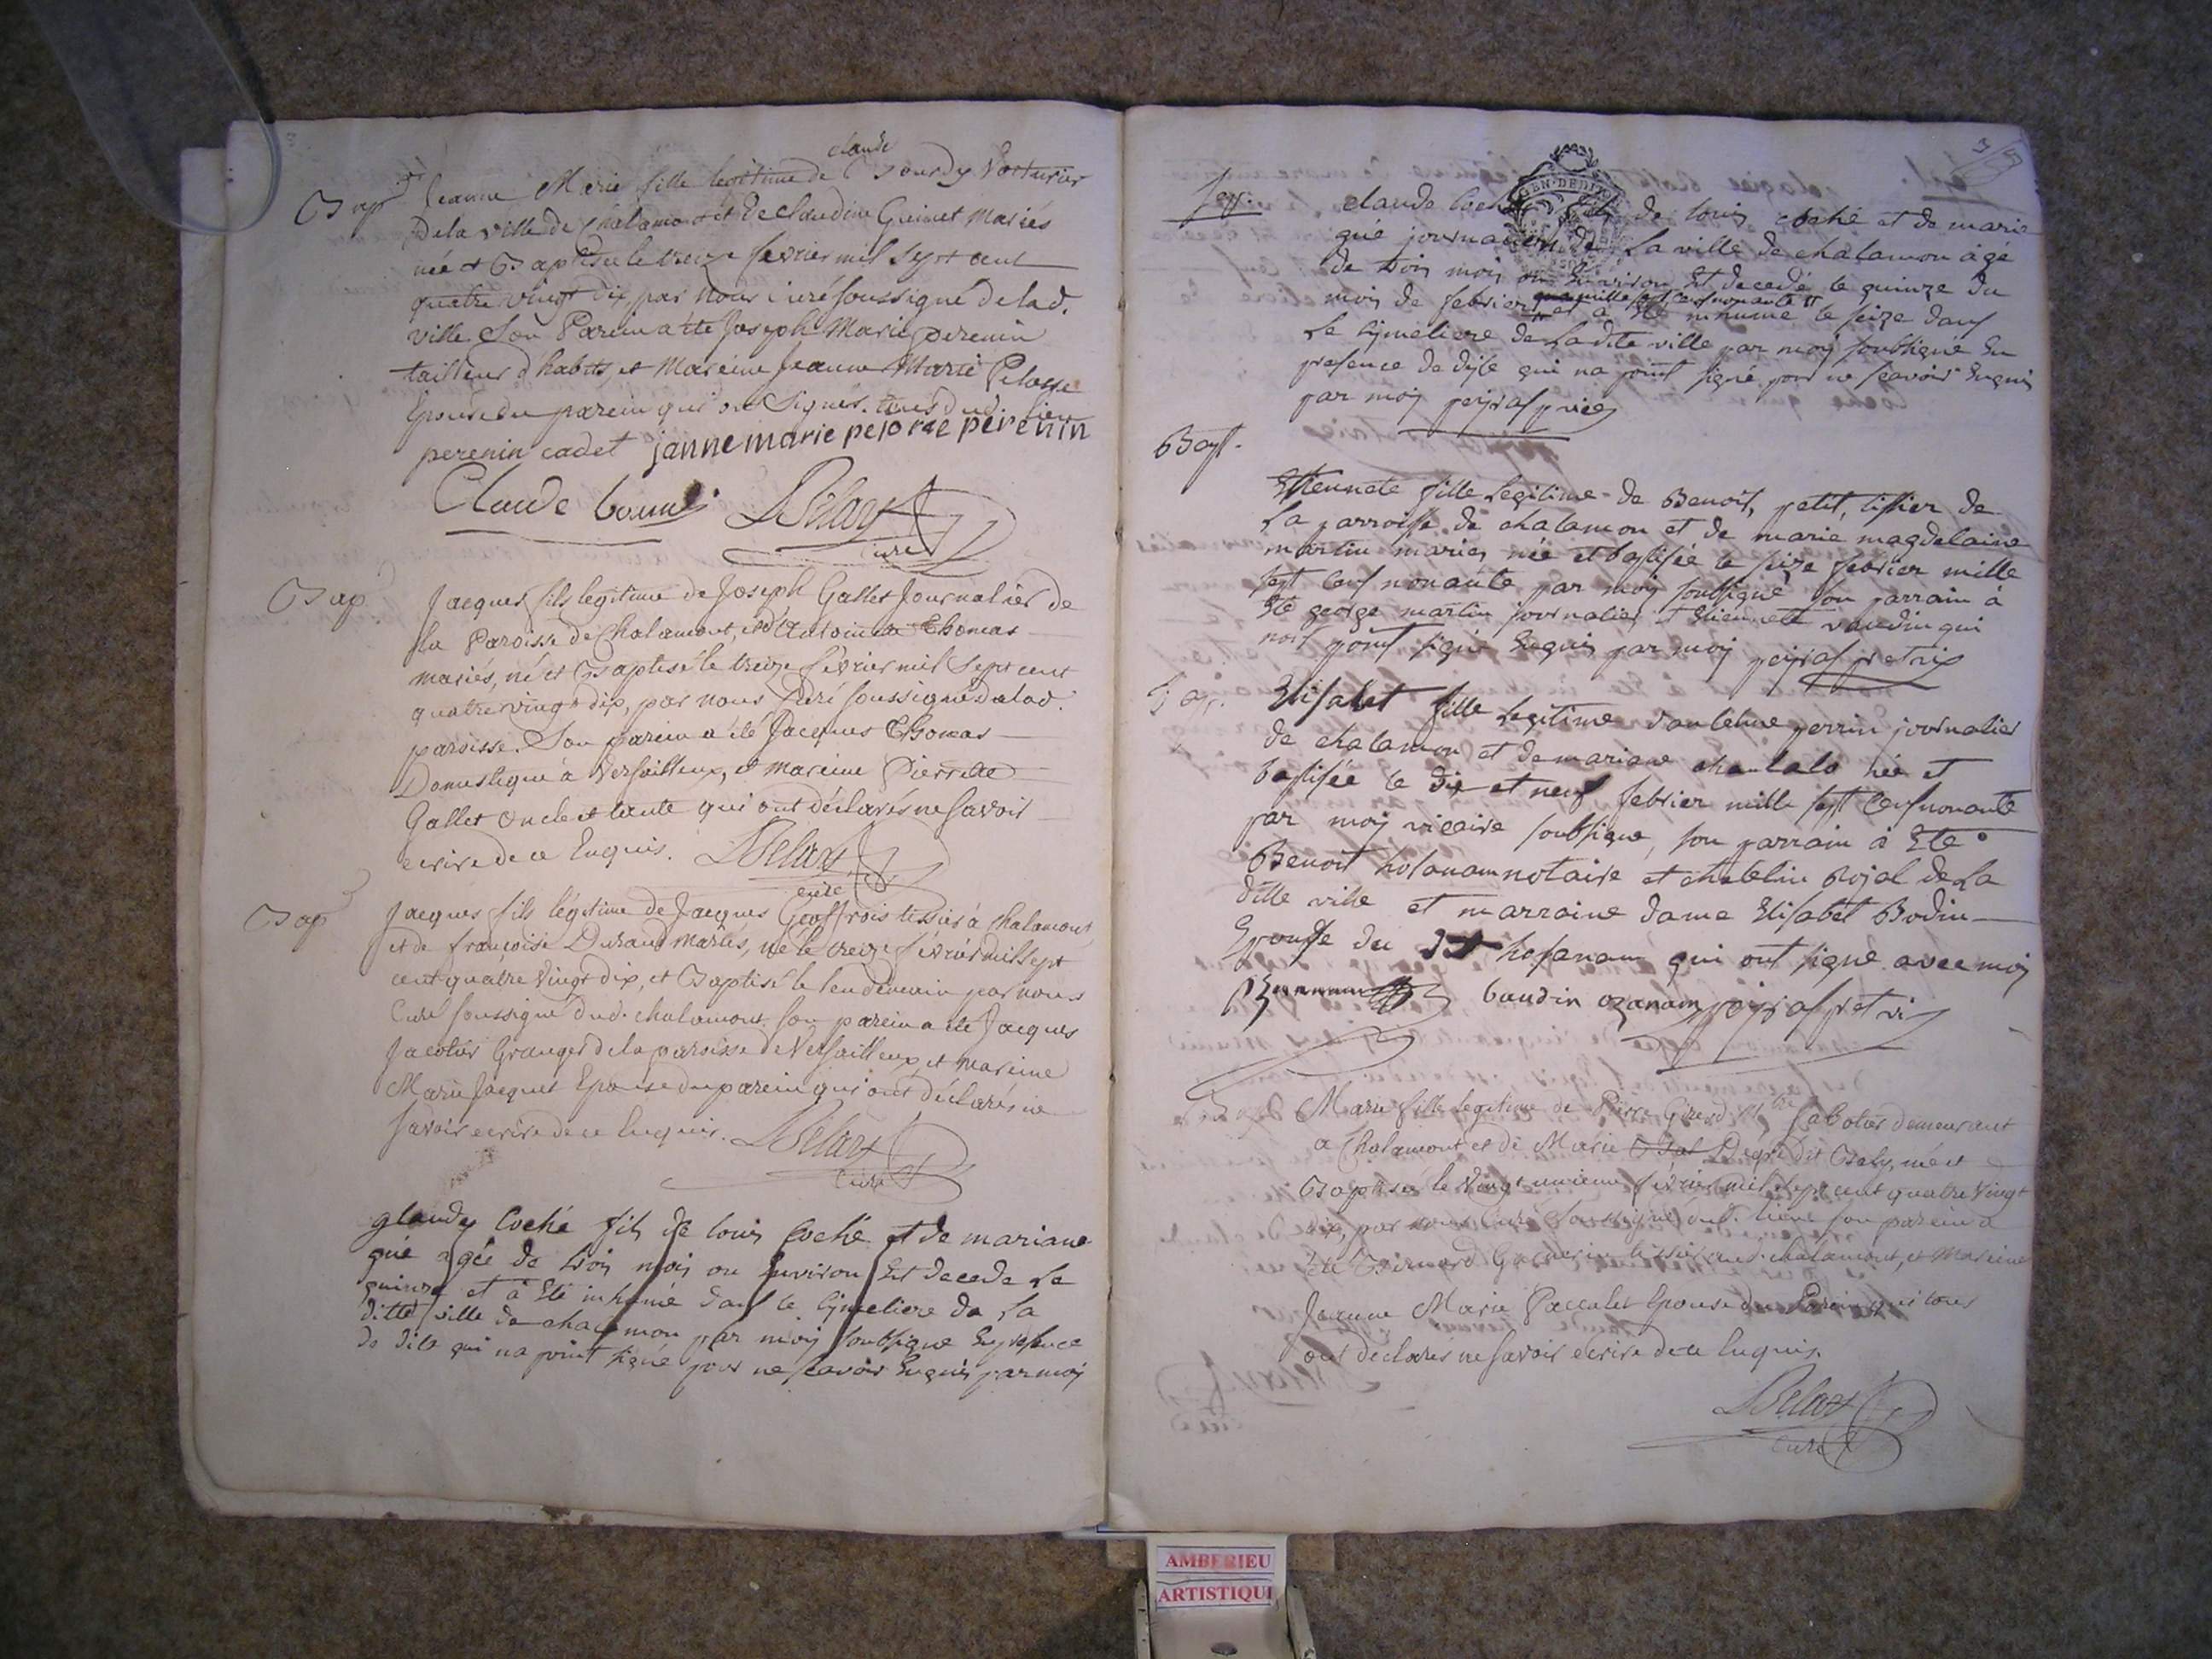 claude
Bap Jeanne Marie fille legitime de Bourdy Voiturier
De la ville de Chalamont et de Claudine Guinet mariés
née et Baptisée le treize fevrier mil sept cent
quatre vingt dix, par nous curé soussigné de lad.
ville. Son Parein a été Joseph Marie perenin
tailleur d'habits, et Mareine Jeanne Marie Pelosse
Epouse du parein qui ont Signés. tous dud. lieu
perenin cadet janne marie pelorce perenin
Claude bourdi
Curé
Bap Jacques fils legitime de Joseph Gallet Journalier de
la Paroisse de Chalamont, et d'Antoinette Thomas
mariés, né et Baptisé le treize février mil Sept cent
quatre vingt dix, par nous Curé soussigné de lad.
paroisse. Son parein a été Jacques Thomas
Domestique à Versailleux, et mareine Pierrette
Gallet oncle et tante qui ont déclarés ne Savoir
ecrire de ce Enquis.
curé
Bap Jacques fils légitime de Jacques Geoffrois tissier à Chalamont,
et de françoise Durand Mariés, né le treize février mil sept
cent quatre vingt dix, et Baptisé le lendemain par nous
Curé soussigné dud. chalamont. son parein a été Jacques
Jacotier Granger de la paroisse de Versailleux, et mareine
Marie Jacquet Epouse du parein qui ont déclarés ne
Savoir ecrire de ce Enquis.
Curé
glaudy Coché fils de louis Coché et de mariane
gué agée de trois mois ou Environ Est decede Le
quinze et à Eté inhume dans le Cymetiere de La
ditte ville de chalamon par moy soubsigne En presence
de dite qui na point signé pour ne scavoir Enquis par moy
3
Sep. claude Coché fils de louis coché et de marie
gué journalier de La ville de chalamon âgé
de trois mois ou Environ Est decedé le quinze du
mois de febrier mille sept cens nonante
et à Eté innumé le seize dans
Le Cymetiere de Ladite ville par moy soubsigné En
presence de dite qui na point signé pour ne scavoir Enquis
par moy
Bapt.
Ettiennete fille Legitime de Benoit, petit, tissier de
La parroisse de chalamon et de marie magdelaine
martin mariés née et baptisée le seize febrier mille
sept Cens nonante par moy soubsigné son parrain à
Eté george martin journalier et Etiennete vaudin qui
nont point signé Enquis par moy
Bap. Elisabet fille Legitime d'antelme perrin journalier
de chalamon et de mariane née et
baptisée le dix et neuf febrier mille sept Cens nonante
par moy vicaire soubsigne, son parrain à Eté
Benoit hosanam notaire et chatelin Roial de La
ditte ville et marraine dame Elisabet Bodin
Epouse du dit hosanam qui ont signé avec moy
baudin ozanam
Bap Marie fille legitime de Pierre Girerd sabotier demeurant
a Chalamont et de Marie dit Baly, née et
Baptisée le vingt unieme février mil sept cent quatre vingt
dix, par nous Curé Soussigné dud. lieu. son parein a
été Bernard tissier aud. chalamont, et Mareine
Jeanne Marie Paccalet Epouse du Parein qui tous
ont déclarés ne Savoir ecrire de ce Enquis.
Curé
AMBERIEU
ARTISTIQUE